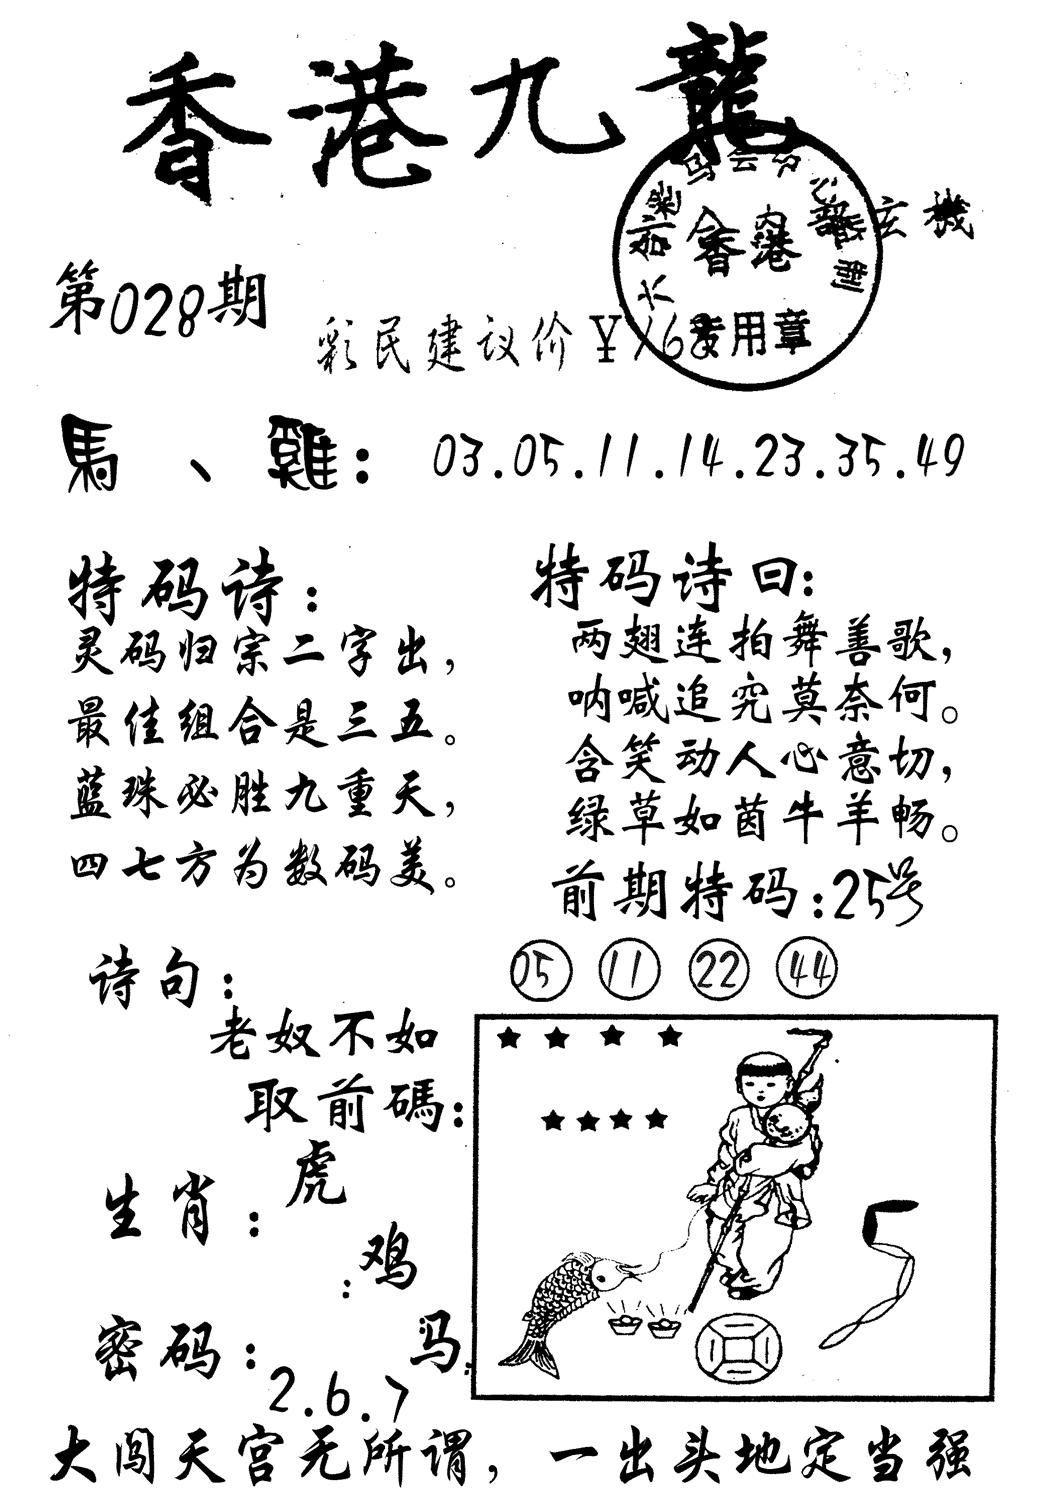 香港九龍
玄機
香港
专用章
第028期
彩民建议价¥168
馬、雞：03.05.11.14.23.35.49
特码诗：
灵码归宗二字出，
最佳组合是三五。
蓝珠必胜九重天，
四七方为数码美。
特码诗曰：
两翅连拍舞善歌，
呐喊追究莫奈何。
含笑动人心意切，
绿草如茵牛羊畅。
前期特码：25号
05 11 22 44
诗句：
老奴不如
取前碼：
生肖：虎
：鸡
马
密码：
2.6.7
5
大闯天宫无所谓，一出头地定当强